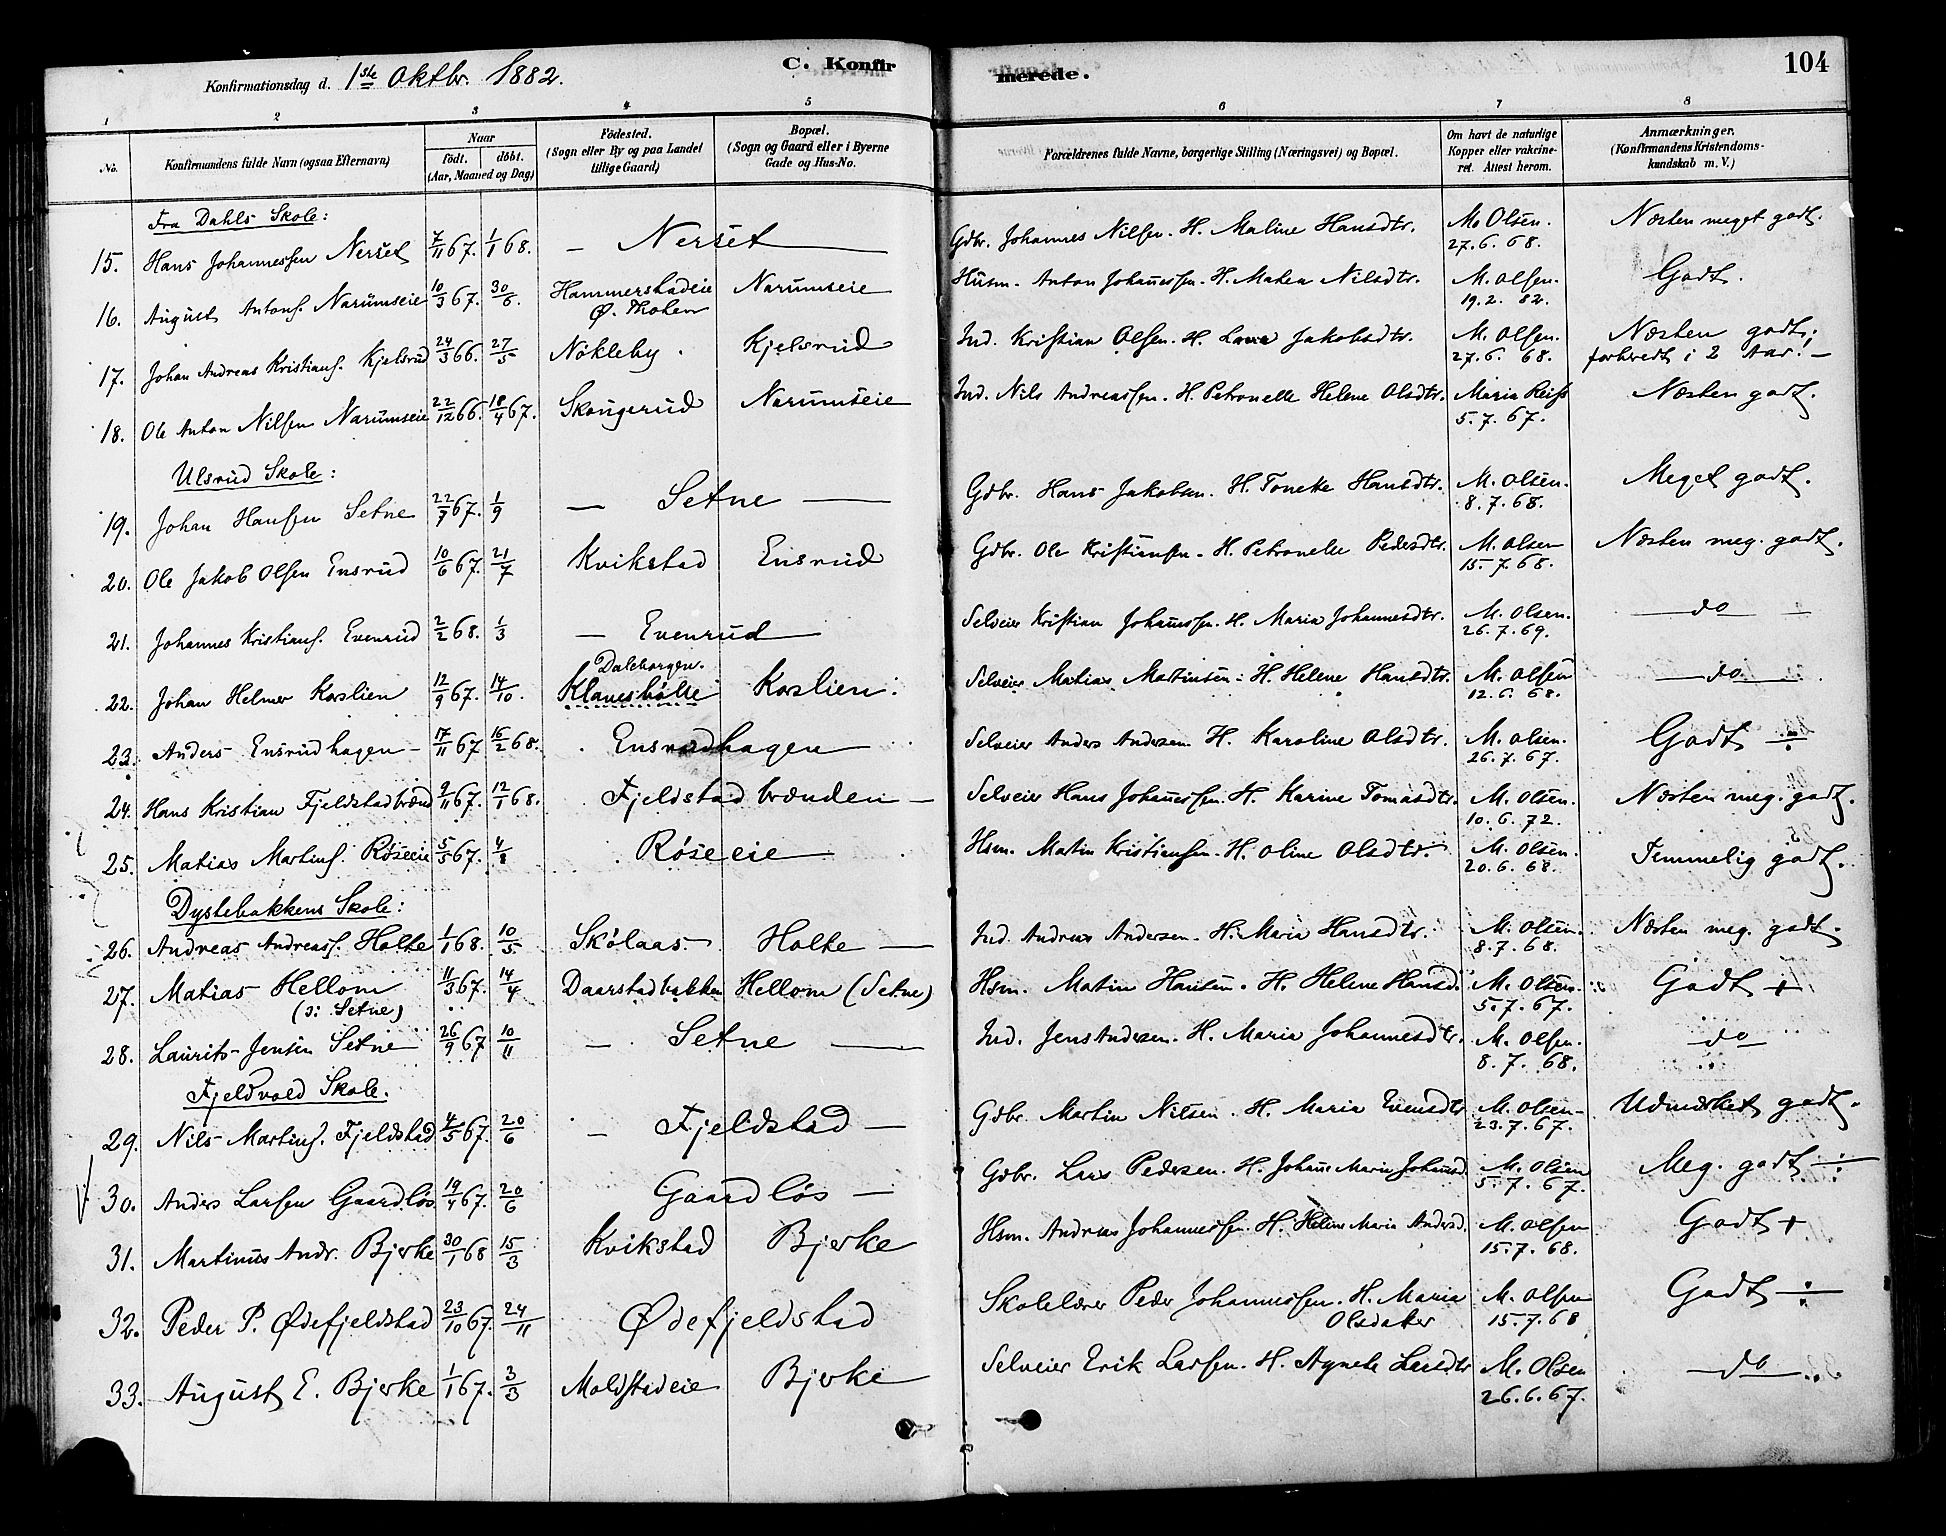 Konfirmationsdag d. 1ste Oktbr. 1882. C. Konfirmerede. 104
1 2 3 4 5 6 7 8
No. Konfirmandens fulde Navn (ogsaa Efternavn) Naar født. døbt. (Aar, Maaned og Dag) Fødested. (Sogn eller By og paa Landet tillige Gaard) Bopæl. (Sogn og Gaard eller i Byerne Gade og Hus-No. Forældrenes fulde Navne, borgerlige Stilling (Næringsvei) og Bopæl. Om havt de naturlige Kopper eller vakcineret. Attest herom. Anmærkninger. (Konfirmandens Kristendomskundskab m. V.)
Fra Dahls Skole:
15. Hans Johannessen Nerset 7/11 67. 1/1 68. — Nerset — Gdbr. Johannes Nilsen. H. Maline Hansdtr. M. Olsen. 27.6.68. Næsten meget godt.
16. August Antons. Narumseie 10/3 67. 30/6. Hammerstadeie Ø. Thoten Narumseie Husm. Anton Johannessen. H. Maken Nilsdtr. M. Olsen. 19.2.82. Godt.
17. Johan Andreas Kristians. Kjelsrud 24/3 66. 27/5 Nökleby. Kjelsrud Ind. Kristian Olsen. H. Lava Jakobsdtr. M. Olsen. 27.6.68. Næsten godt; forberedt i 2 Aar. —
18. Ole Anton Nilsen Narumseie 22/12 66. 18/4 67. Skougerud Narumseie Ind. Nils Andreassen. H. Petronelle Helene Olsdtr. Maria Reiss 5.7.67. Næsten godt.
Ulsrud Skole:
19. Johan Hansen Setne 22/7 67. 1/9 — Setne — Gdbr. Hans Jakobsen. H. Tonette Hansdtr. M. Olsen. 8.7.68. Meget godt.
20. Ole Jakob Olsen Ensrud 10/6 67. 21/7 Kvikstad Ensrud Gdbr. Ole Kristiansen. H. Petronelle Pedersdtr. M. Olsen 15.7.68. Næsten meg. godt.
21. Johannes Kristians. Evenrud 2/2 68. 1/3 — Evenrud — Selveier Kristian Johannssen. H. Maria Johannesdtr. M. Olsen. 26.7.69. — do —
22. Johan Helmer Korslien 12/9 67. 14/10. Daleborgen. Klaueshølte Korslien. Selveier Matias Martinsen. H. Helene Hansdtr. M. Olsen 12.6.68. — do —
23. Anders Ensrudhagen — 17/11 67 16/2 68. Ensrudhagen — Selveier Anders Andersen H. Karoline Olsdtr. M. Olsen. 26.7.67. Godt ÷
24. Hans Kristian Fjeldstadbrænd 9/11 67. 12/1 68. Fjeldstadbrænden — Selveier Hans Johannessen. H. Karine Tomasdtr. M. Olsen. 10.6.72. Næsten meg. godt.
25. Matias Martins. Røseeie 5/5 67. 4/8 Røseeie — Hsm. Matin Kristiansen. H. Oline Olsdtr. M. Olsen. 20.6.68. Temmelig godt.
Dystebakkens Skole:
26. Andreas Andreas. Holte 1/1 68. 10/5 Skölaas Holte — Ind. Andreas Andersen. H. Maria Hansdtr. M. Olsen. 8.7.68. Næsten meg. godt.
27. Matias Hellom (ɔ: Setne) 11/3 67. 14/4 Daarstadbakken Hellom (Setne) Hsm. Matin Hansen. H. Helene Hansd. M. Olsen. 5.7.67. Godt +
28. Laurits Jensen Setne 26/9 67 10/11 — Setne — Ind. Jens Andersen. H. Maria Johannesdtr. M. Olsen. 8.7.68. do
Fjeldvold Skole.
29. Nils Martins. Fjeldstad 4/5 67. 20/6 — Fjeldstad — Gdbr. Martin Nilsen. H. Maria Evensdtr M. Olsen. 23.7.67. Udmærket godt.
30. Anders Larsen Gaardløs 19/4 67. 20/6 Gaardløs — Gdbr. Lars Pedersen. H. Johane Maria Johansd. M. Olsen 5.7.67. Meg. godt ÷
31. Martinus Andr. Bjerke 30/1 68 15/3 Kvikstad Bjerke Hsm. Andreas Johannessen. H. Helene Maria Andersd. M. Olsen 15.7.68. Godt +
32. Peder P. Ødefjeldstad 23/10 67. 24/11 Ødefjeldstad Skolelærer Peder Johannessen. H. Maria Olsdatter M. Olsen 15.7.68 Godt ÷
33. August E. Bjerke 1/1 67. 3/3 Moldstadeie Bjerke Selveier Erik Larsen. H. Agnete Larsdtr M. Olsen 26.6.67. — do